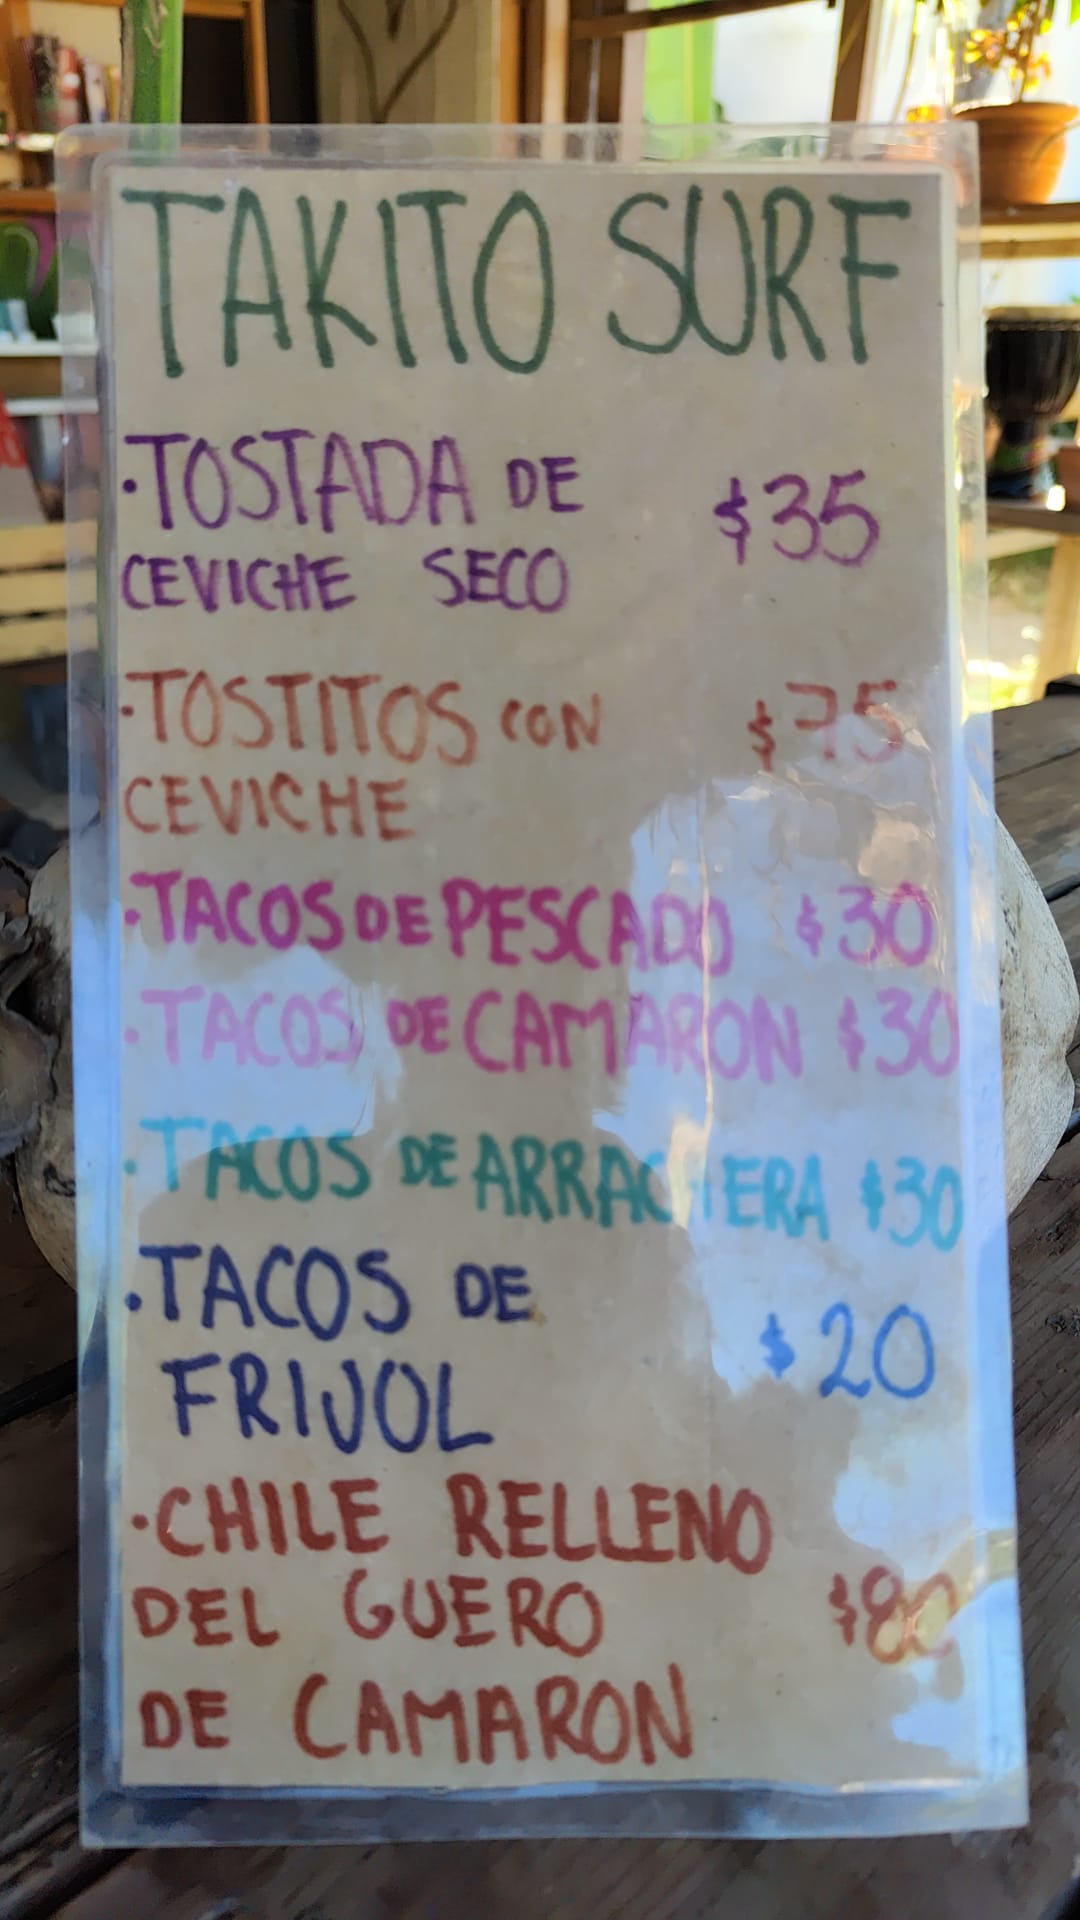 TAKITO SURF
·TOSTADA DE $35
CEVICHE SECO
·TOSTITOS CON $75
CEVICHE
·TACOS DE PESCADO $30
·TACOS DE CAMARON $30
·TACOS DE ARRACHERA $30
·TACOS DE
FRIJOL $20
·CHILE RELLENO
DEL GUERO $80
DE CAMARON